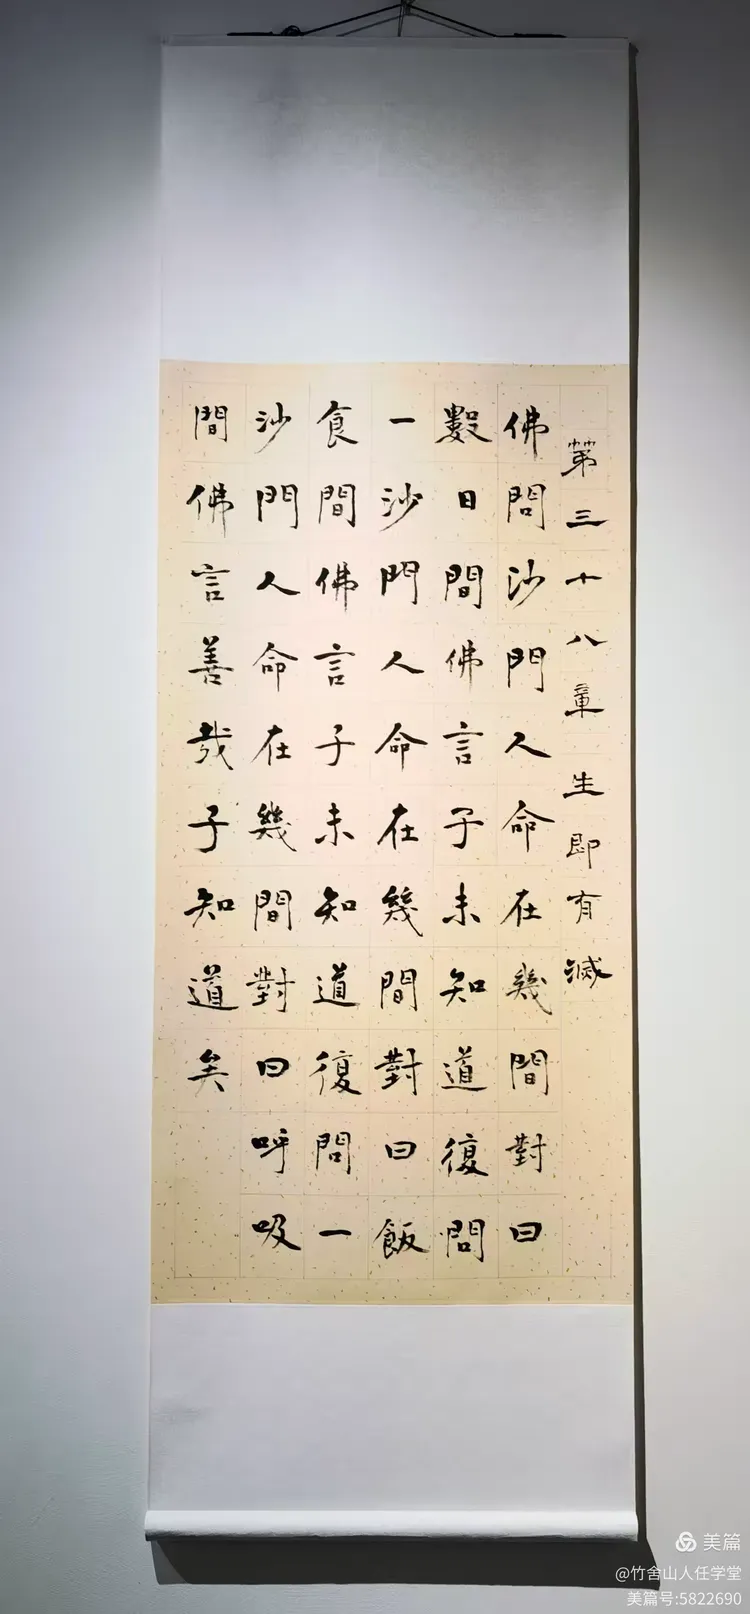 第三十八章生即有滅
佛問沙門人命在幾間對曰
數日間佛言子未知道復問
一沙門人命在幾間對曰飯
食間佛言子未知道復問一
沙門人命在幾間對曰呼吸
間佛言善哉子知道矣
美篇
@竹舍山人任学堂
美篇号:5822690